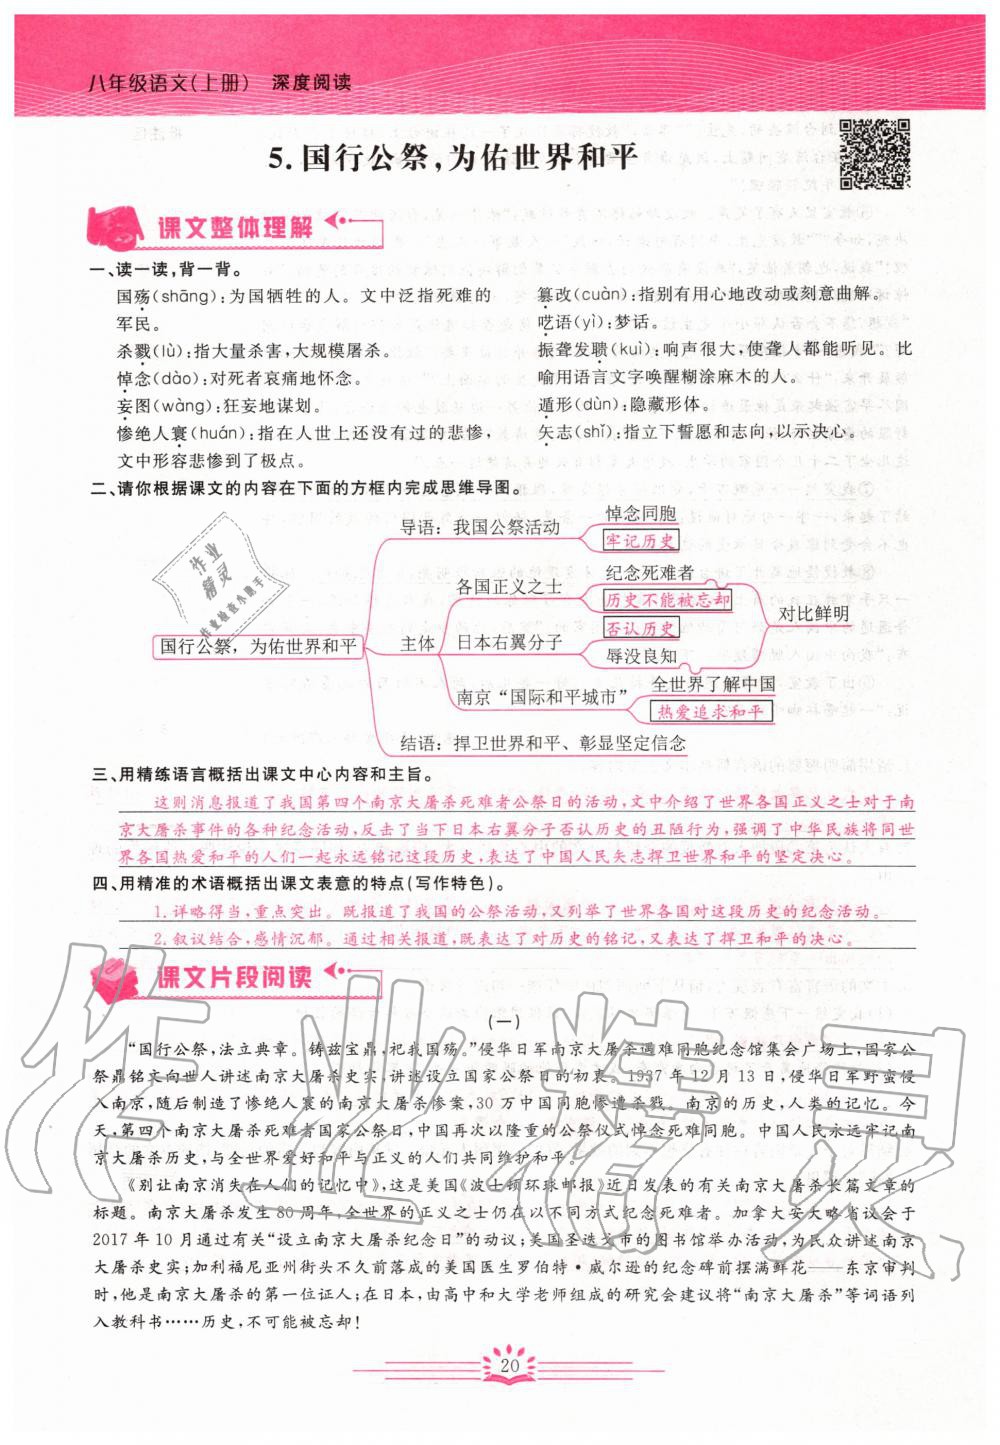 八年级语文(上册) 深度阅读
5.国行公祭,为佑世界和平
课文整体理解
一、读一读,背一背。
国殇(shāng):为国牺牲的人。文中泛指死难的
军民。
杀戮(lù):指大量杀害,大规模屠杀。
悼念(dào):对死者哀痛地怀念。
妄图(wàng):狂妄地谋划。
惨绝人寰(huán):指在人世上还没有过的悲惨,
文中形容悲惨到了极点。
篡改(cuàn):指别有用心地改动或刻意曲解。
呓语(yì):梦话。
振聋发聩(kuì):响声很大,使聋人都能听见。比
喻用语言文字唤醒糊涂麻木的人。
遁形(dùn):隐藏形体。
矢志(shǐ):指立下誓愿和志向,以示决心。
二、请你根据课文的内容在下面的方框内完成思维导图。
国行公祭，为佑世界和平
导语：我国公祭活动
悼念同胞
牢记历史
主体
各国正义之士
纪念死难者
历史不能被忘却
日本右翼分子
否认历史
辱没良知
对比鲜明
南京“国际和平城市”
全世界了解中国
热爱追求和平
结语：捍卫世界和平、彰显坚定信念
三、用精练语言概括出课文中心内容和主旨。
这则消息报道了我国第四个南京大屠杀死难者公祭日的活动,文中介绍了世界各国正义之士对于南
京大屠杀事件的各种纪念活动,反击了当下日本右翼分子否认历史的丑陋行为,强调了中华民族将同世
界各国热爱和平的人们一起永远铭记这段历史,表达了中国人民矢志捍卫世界和平的坚定决心。
四、用精准的术语概括出课文表意的特点(写作特色)。
1.详略得当,重点突出。既报道了我国的公祭活动,又列举了世界各国对这段历史的纪念活动。
2.叙议结合,感情沉郁。通过相关报道,既表达了对历史的铭记,又表达了捍卫和平的决心。
课文片段阅读
(一)
“国行公祭,法立典章。铸兹宝鼎,祀我国殇。”侵华日军南京大屠杀遇难同胞纪念馆集会广场上,国家公
祭鼎铭文向世人讲述南京大屠杀史实,讲述设立国家公祭日的初衷。1937年12月13日,侵华日军野蛮侵
入南京,随后制造了惨绝人寰的南京大屠杀惨案,30万中国同胞惨遭杀戮。南京的历史,人类的记忆。今
天,第四个南京大屠杀死难者国家公祭日,中国再次以隆重的公祭仪式悼念死难同胞。中国人民永远牢记南
京大屠杀历史,与全世界爱好和平与正义的人们共同维护和平。
《别让南京消失在人们的记忆中》,这是美国《波士顿环球邮报》近日发表的有关南京大屠杀长篇文章的
标题。南京大屠杀发生80周年,全世界的正义之士仍在以不同方式纪念死难者。加拿大安大略省议会于
2017年10月通过有关“设立南京大屠杀纪念日”的动议;美国圣迭戈市的图书馆举办活动,为民众讲述南京
大屠杀史实;加利福尼亚州街头不久前落成的美国医生罗伯特·威尔逊的纪念碑前摆满鲜花——东京审判
时,他是南京大屠杀的第一位证人;在日本,由高中和大学老师组成的研究会建议将“南京大屠杀”等词语列
入教科书……历史,不可能被忘却！
20
作业精灵
作业精灵
作业检查小助手